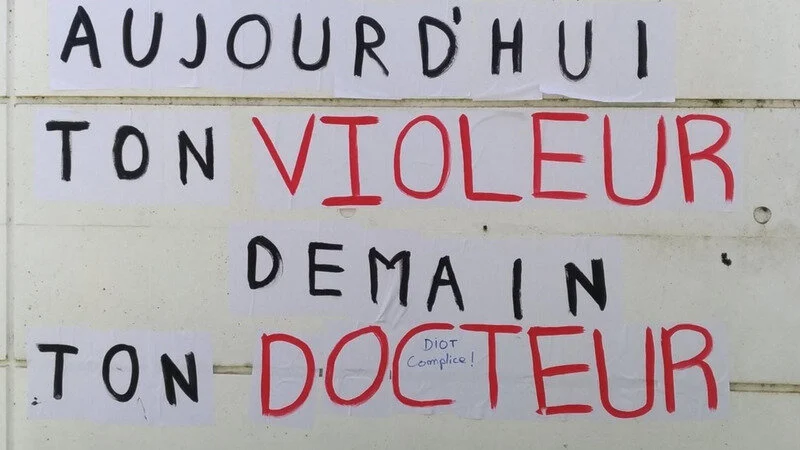 AUJOURD'HUI
TON VIOLEUR
DEMAIN
TON DOCTEUR
DIOT
Complice!